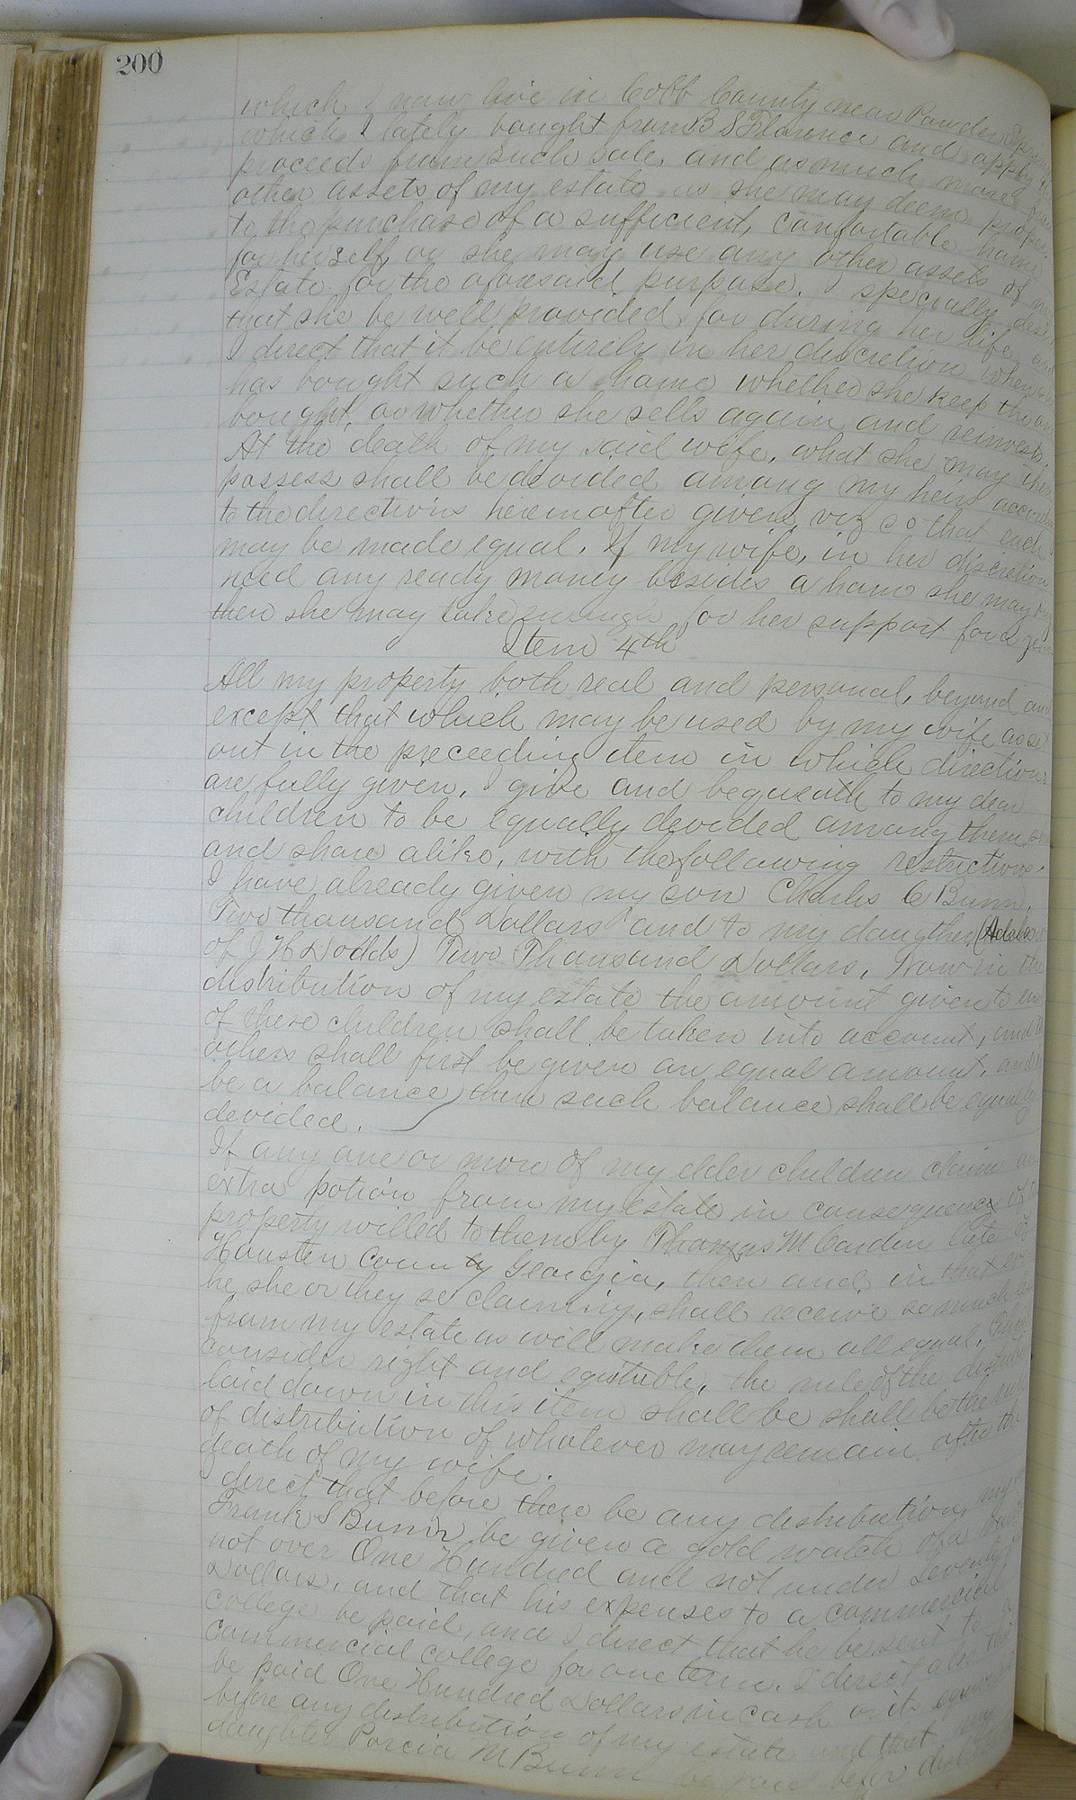 200
which I now live in Cobb County near Powder
which I lately bought from B S Florence and apply
proceeds from such sale, and as much more
other assets of my estate as she may deem proper
to the purchase of a sufficient, comfortable home
for herself, or she may use any other assets of my
Estate for the aforesaid purpose. I specially
that she be well provided for during her life and
I direct that it be entirely in her discretion when
has bought such a home whether she keep the
bought, or whether she sells again and reinvests
At the death of my said wife, what she may then
possess shall be devided among my heirs
to the directions hereinafter given, viz so that each
may be made equal. If my wife, in her discretion
need any ready money besides a home she may
then she may take enough for her support for a year
Item 4th
All my property both real and personal, beyond and
except that which may be used by my wife as set
out in the preceeding item in which directions
are fully given, I give and bequeath to my dear
children to be equally devided among them
and share alike, with the following restrictions.
I have already given my son Charles C Bunn
Two thousand Dollars and to my daughter
of J H Dodds) Two Thousand Dollars, Now in the
distribution of my estate the amount given to
of these children shall be taken into account, and
others shall first be given an equal amount, and
be a balance then such balance shall be equally
devided.
If any one or more of my elder children claim an
extra potion from my estate in consequence of
property willed to them by Thomas M Carden late of
Housten County Georgia, then and in that
he, she or they so claiming, shall receive so much
from my estate as will make them all equal,
consider right and eqitable, the rule of the
laid down in this item shall be shall be the
of distribution of whatever may remain after the
death of my wife.
I direct that before there be any distribution, my
Frank S Bunn, be given a gold watch of a
not over One Hundred and not under Seventy
Dollars, and that his expenses to a commercial
College be paid, and I direct that he be sent to
commercial college for one term. I direct also that
be paid One Hundred Dollars in Cash or its
before any distribution of my estate and that my
daughter Porcia M Bunn be